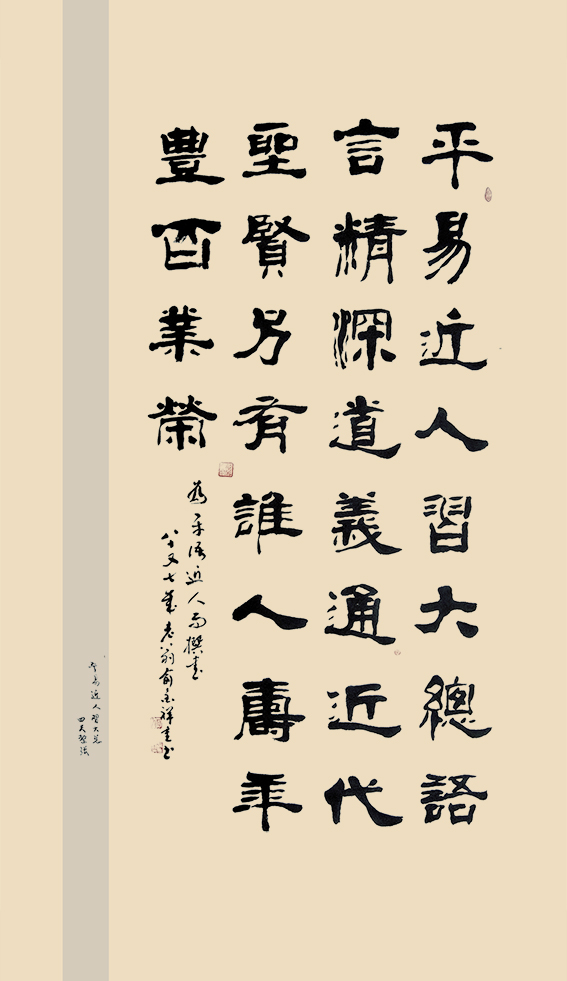 平易近人習大總語
言精深道義通近代
聖賢乃有誰人壽年
豐百業榮
為平語近人而撰書
八十又七歲老翁俞金祥書
平易近人習大總